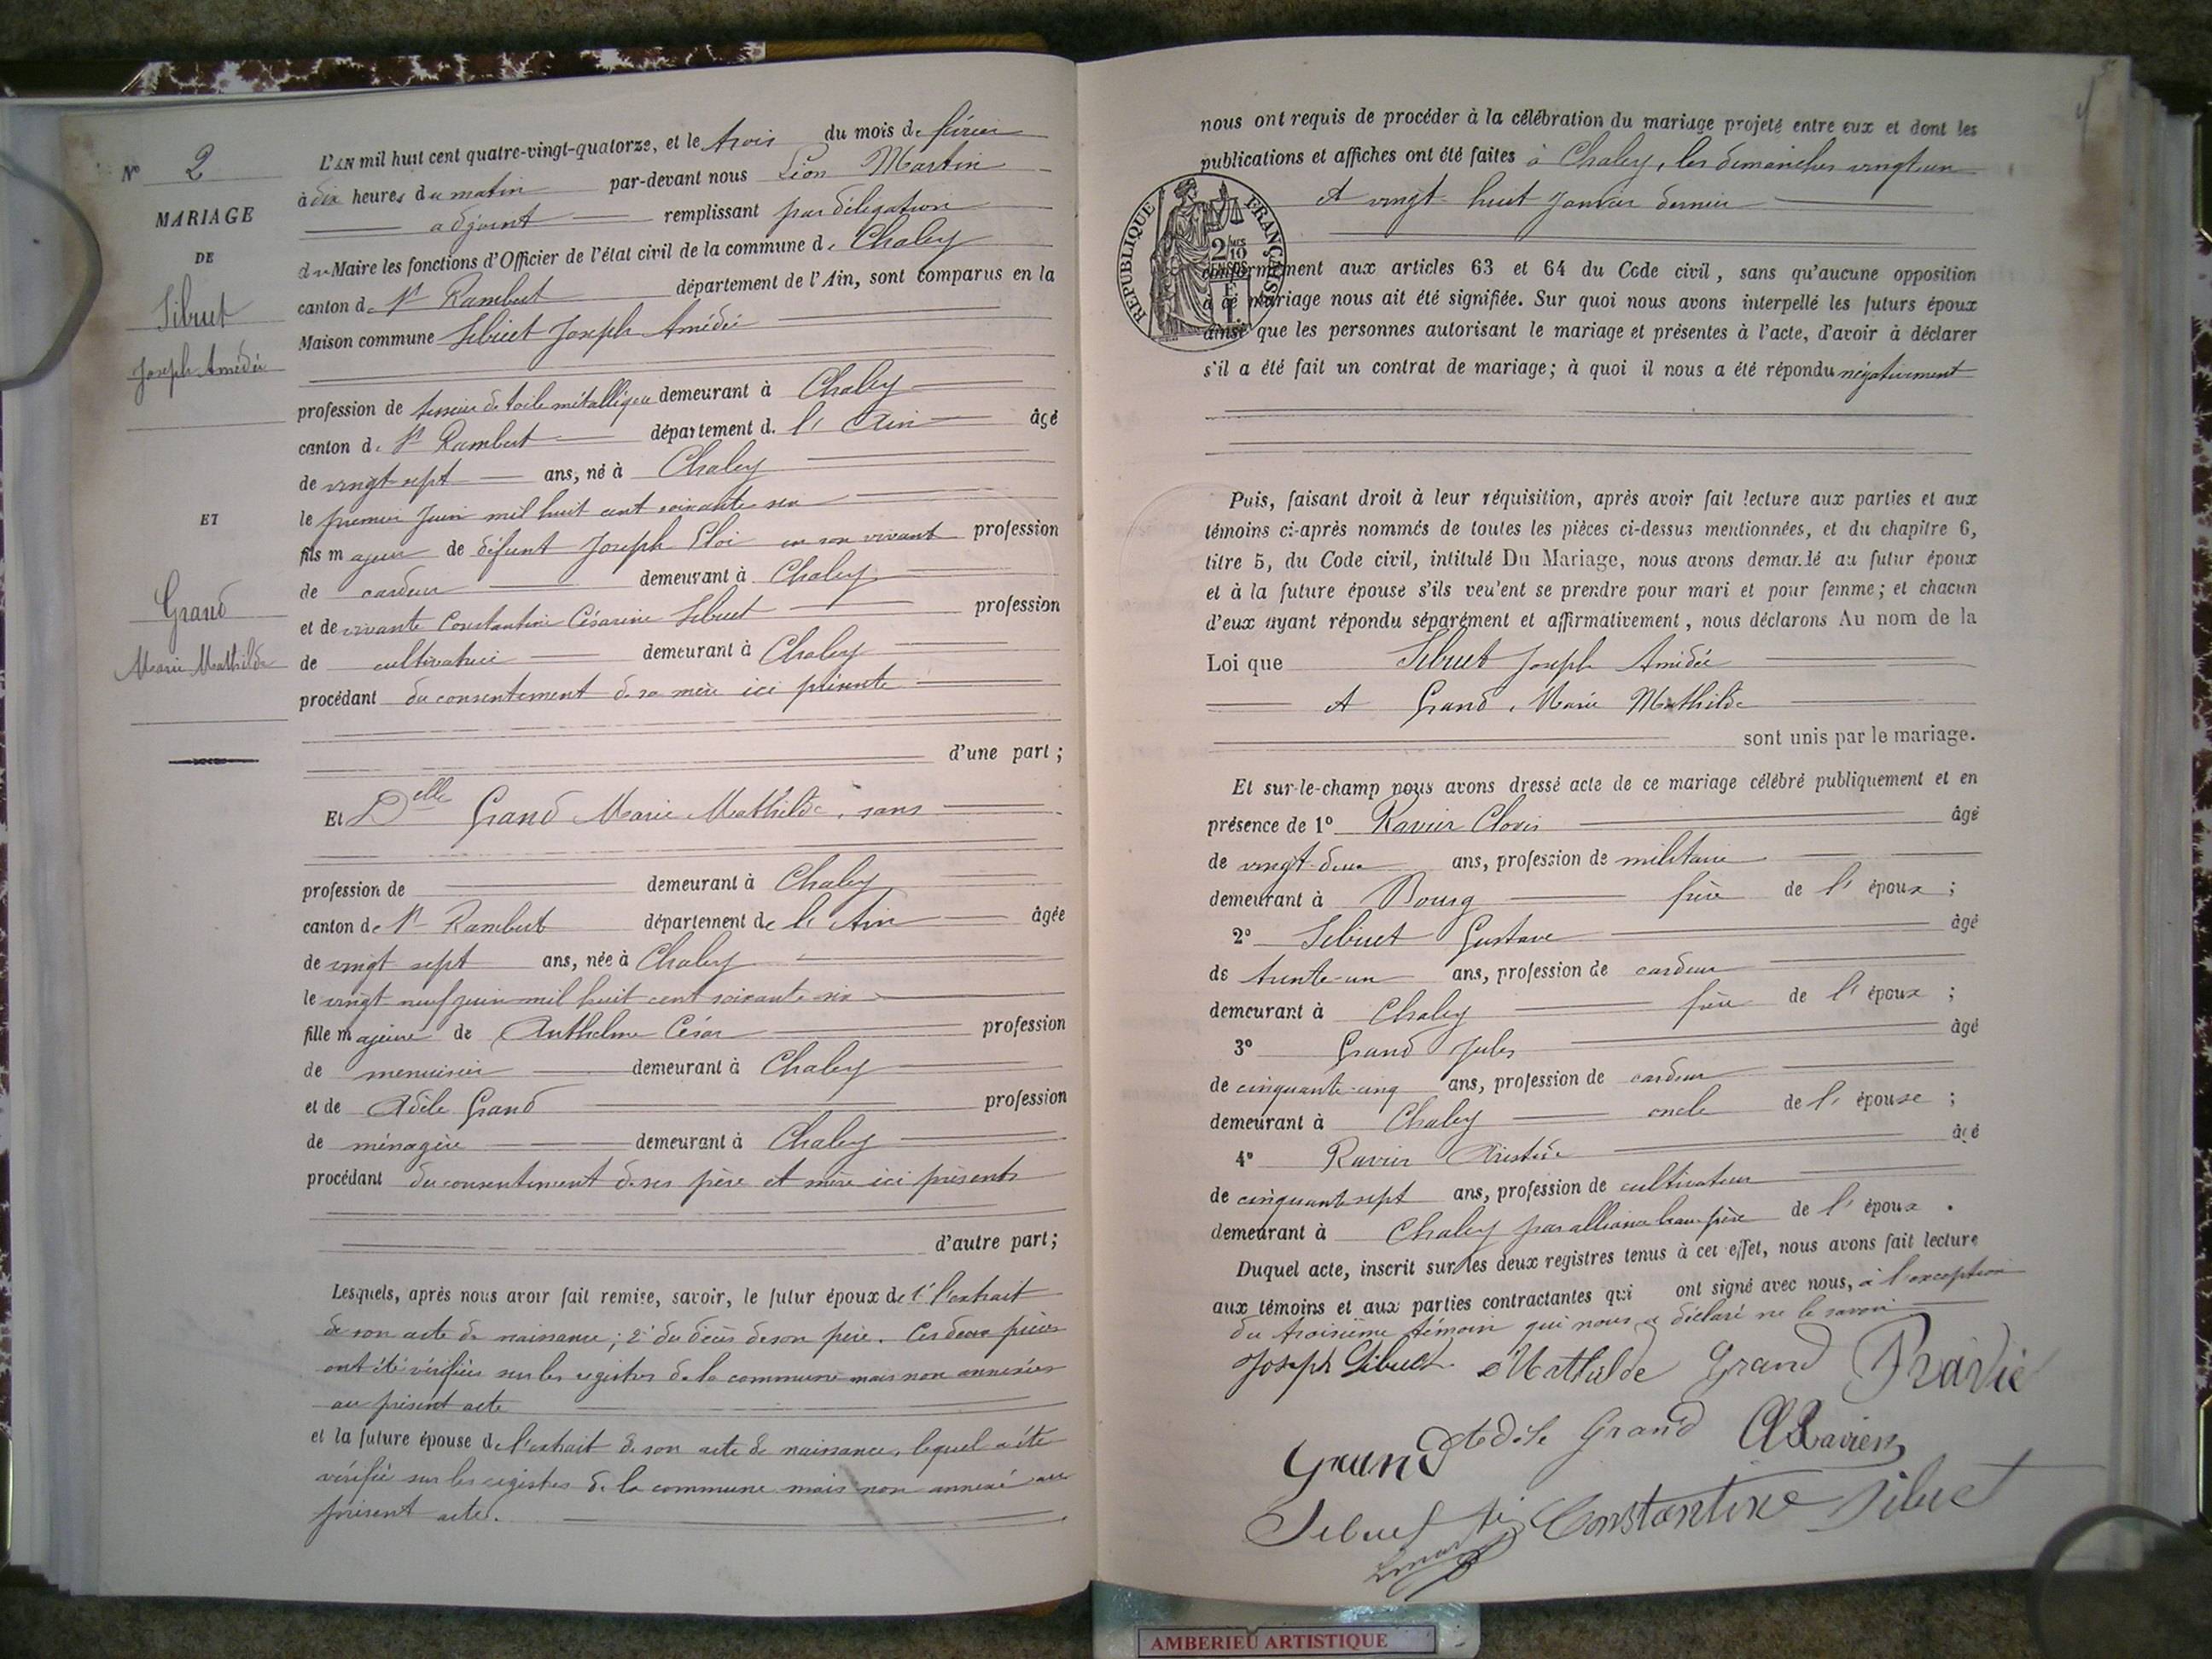 N° 2
MARIAGE
DE
Sibuet
Joseph Amédée
ET
Grand
Marie Mathilde
L'AN mil huit cent quatre-vingt-quatorze, et le trois du mois de février
à dix heures du matin par-devant nous Léon Martin
adjoint remplissant par délégation
du Maire les fonctions d'Officier de l'état civil de la commune de Chaley
canton de St Rambert département de l'Ain, sont comparus en la
Maison commune Sibuet Joseph Amédée
profession de tisseur de toile métallique demeurant à Chaley
canton de St Rambert département d. l' Ain âgé
de vingt-sept ans, né à Chaley
le premier Juin mil huit cent soixante six
fils majeur de défunt Joseph Eloi en son vivant profession
de cardeur demeurant à Chaley
et de vivante Constantine Césarine Sibuet profession
de cultivatrice demeurant à Chaley
procédant du consentement de sa mère ici présente
d'une part ;
Et Delle Grand Marie Mathilde, sans
profession de demeurant à Chaley
canton de St Rambert département de l' Ain âgée
de vingt sept ans, née à Chaley
le vingt neuf juin mil huit cent soixante six
fille majeure de Anthelme César profession
de menuisier demeurant à Chaley
et de Adèle Grand profession
de ménagère demeurant à Chaley
procédant du consentement de ses père et mère ici présents
d'autre part ;
Lesquels, après nous avoir fait remise, savoir, le futur époux de 1° l'extrait
de son acte de naissance ; 2° du décès de son père. Ces deux pièces
ont été vérifiées sur les registres de la commune mais non annexées
au présent acte
et la future épouse de l'extrait de son acte de naissance, lequel a été
vérifié sur les registres de la commune mais non annexé au
présent acte.
4
nous ont requis de procéder à la célébration du mariage projeté entre eux et dont les
publications et affiches ont été faites à Chaley, les dimanches vingt un
et vingt huit Janvier dernier
RÉPUBLIQUE FRANÇAISE
2/10
conformément aux articles 63 et 64 du Code civil, sans qu'aucune opposition
à ce mariage nous ait été signifiée. Sur quoi nous avons interpellé les futurs époux
ainsi que les personnes autorisant le mariage et présentes à l'acte, d'avoir à déclarer
s'il a été fait un contrat de mariage ; à quoi il nous a été répondu négativement
Puis, faisant droit à leur réquisition, après avoir fait lecture aux parties et aux
témoins ci-après nommés de toutes les pièces ci-dessus mentionnées, et du chapitre 6,
titre 5, du Code civil, intitulé Du Mariage, nous avons demandé au futur époux
et à la future épouse s'ils veulent se prendre pour mari et pour femme ; et chacun
d'eux ayant répondu séparément et affirmativement, nous déclarons Au nom de la
Loi que Sibuet Joseph Amédée
et Grand, Marie Mathilde
sont unis par le mariage.
Et sur-le-champ nous avons dressé acte de ce mariage célébré publiquement et en
présence de 1° Ravier Clovis âgé
de vingt-deux ans, profession de militaire
demeurant à Bourg frère de l' époux ;
2° Sibuet Gustave âgé
de trente-un ans, profession de cardeur
demeurant à Chaley frère de l' époux ;
3° Grand Jules âgé
de cinquante-cinq ans, profession de cardeur
demeurant à Chaley oncle de l' épouse ;
4° Ravier Aristide âgé
de cinquante sept ans, profession de cultivateur
demeurant à Chaley par alliance beau père de l' époux .
Duquel acte, inscrit sur les deux registres tenus à cet effet, nous avons fait lecture
aux témoins et aux parties contractantes qui ont signé avec nous, à l'exception
du troisième témoin qui nous a déclaré ne le savoir
Joseph Sibuet Mathilde Grand
Grand Adèle Grand Ravier
Sibuet Constantine Sibuet
AMBERIEU ARTISTIQUE